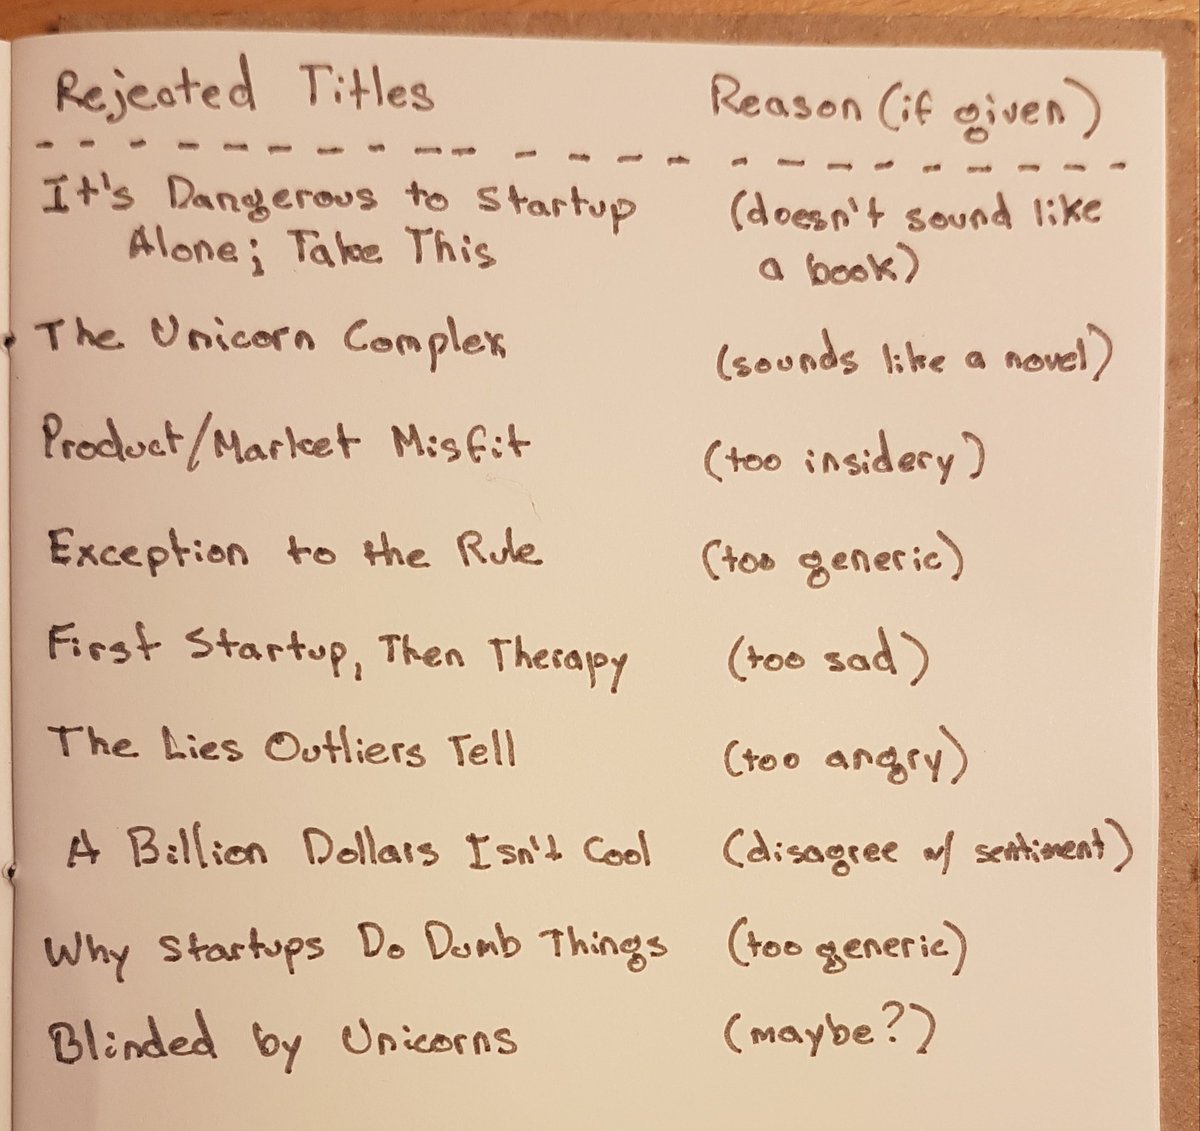 Rejected Titles Reason (if given)
It's Dangerous to Startup (doesn't sound like
Alone; Take This a book)
The Unicorn Complex (sounds like a novel)
Product/Market Misfit (too insidery)
Exception to the Rule (too generic)
First Startup, Then Therapy (too sad)
The Lies Outliers Tell (too angry)
A Billion Dollars Isn't Cool (disagree w/ sentiment)
Why Startups Do Dumb Things (too generic)
Blinded by Unicorns (maybe?)